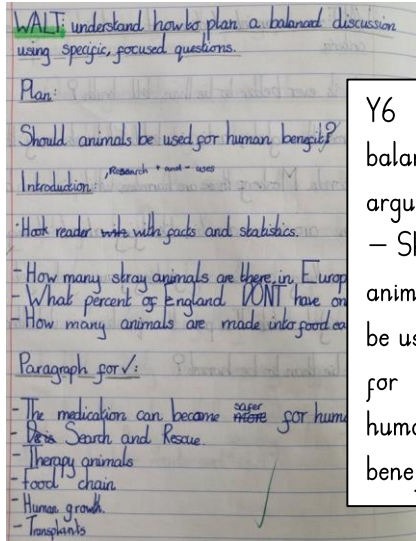 WALT: understand how to plan a balanced discussion
using specific, focused questions.
Plan:
Should animals be used for human benefit?
, Research + and - uses
Introduction:
Hook reader with with facts and statistics.
- How many stray animals are there in Europ
- What percent of England DONT have on
- How many animals are made into food ea
Paragraph for ✓:
safer
- The medication can become more for huma
- Search and Rescue.
- Therapy animals
- food chain
- Human growth.
- Transplants
Y6
balan
argu
anim
be us
for
huma
bene